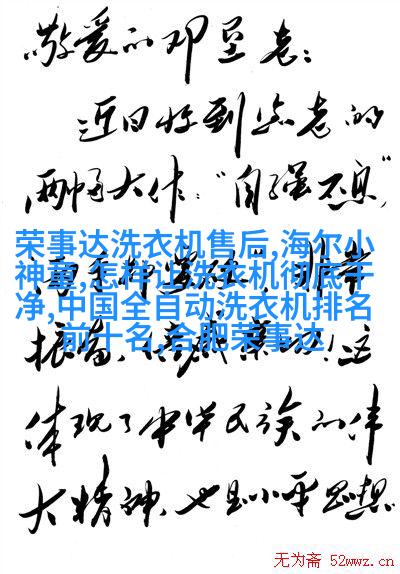 敬爱的邓垦老：
近日收到您老的
两幅大作：“自强不息”
荣事达洗衣机售后,海尔小
神童,怎样让洗衣机彻底干
净,中国全自动洗衣机排名
前十名,合肥荣事达
非常
振奋、这
体现了中华民族的伟
大精神，也是小平思想
无为斋 52wwz.cn